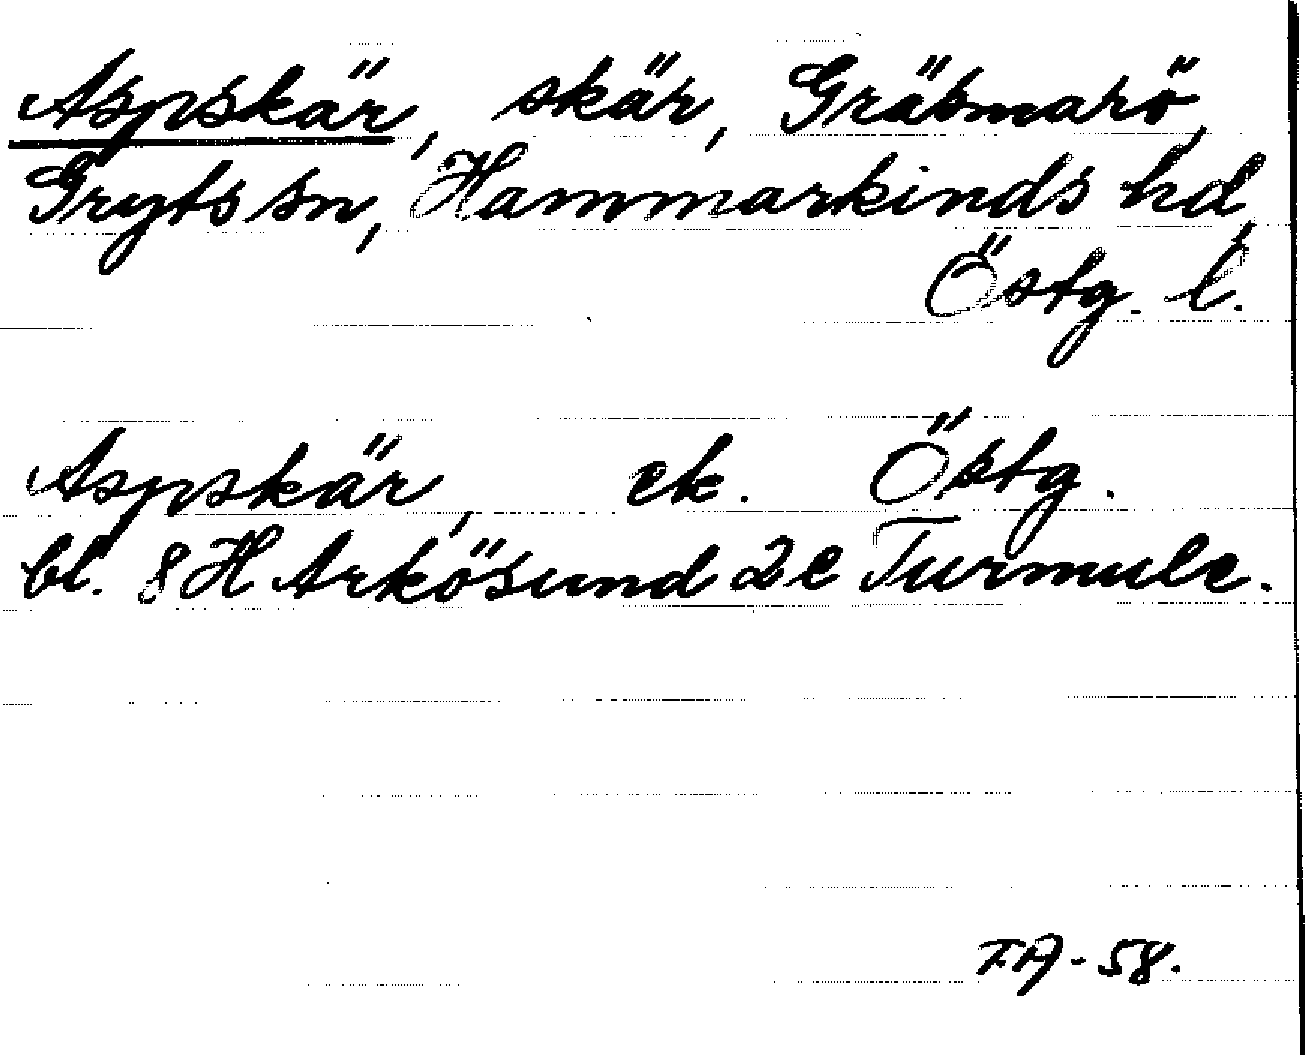 Aspskär, skär, Gräsmarö,
Gryts sn, Hammarkinds hd,
Östg. l.
Aspskär, ek. Östg.
bl. 8 H Arkösund 2 e Turmule.
FA-58.